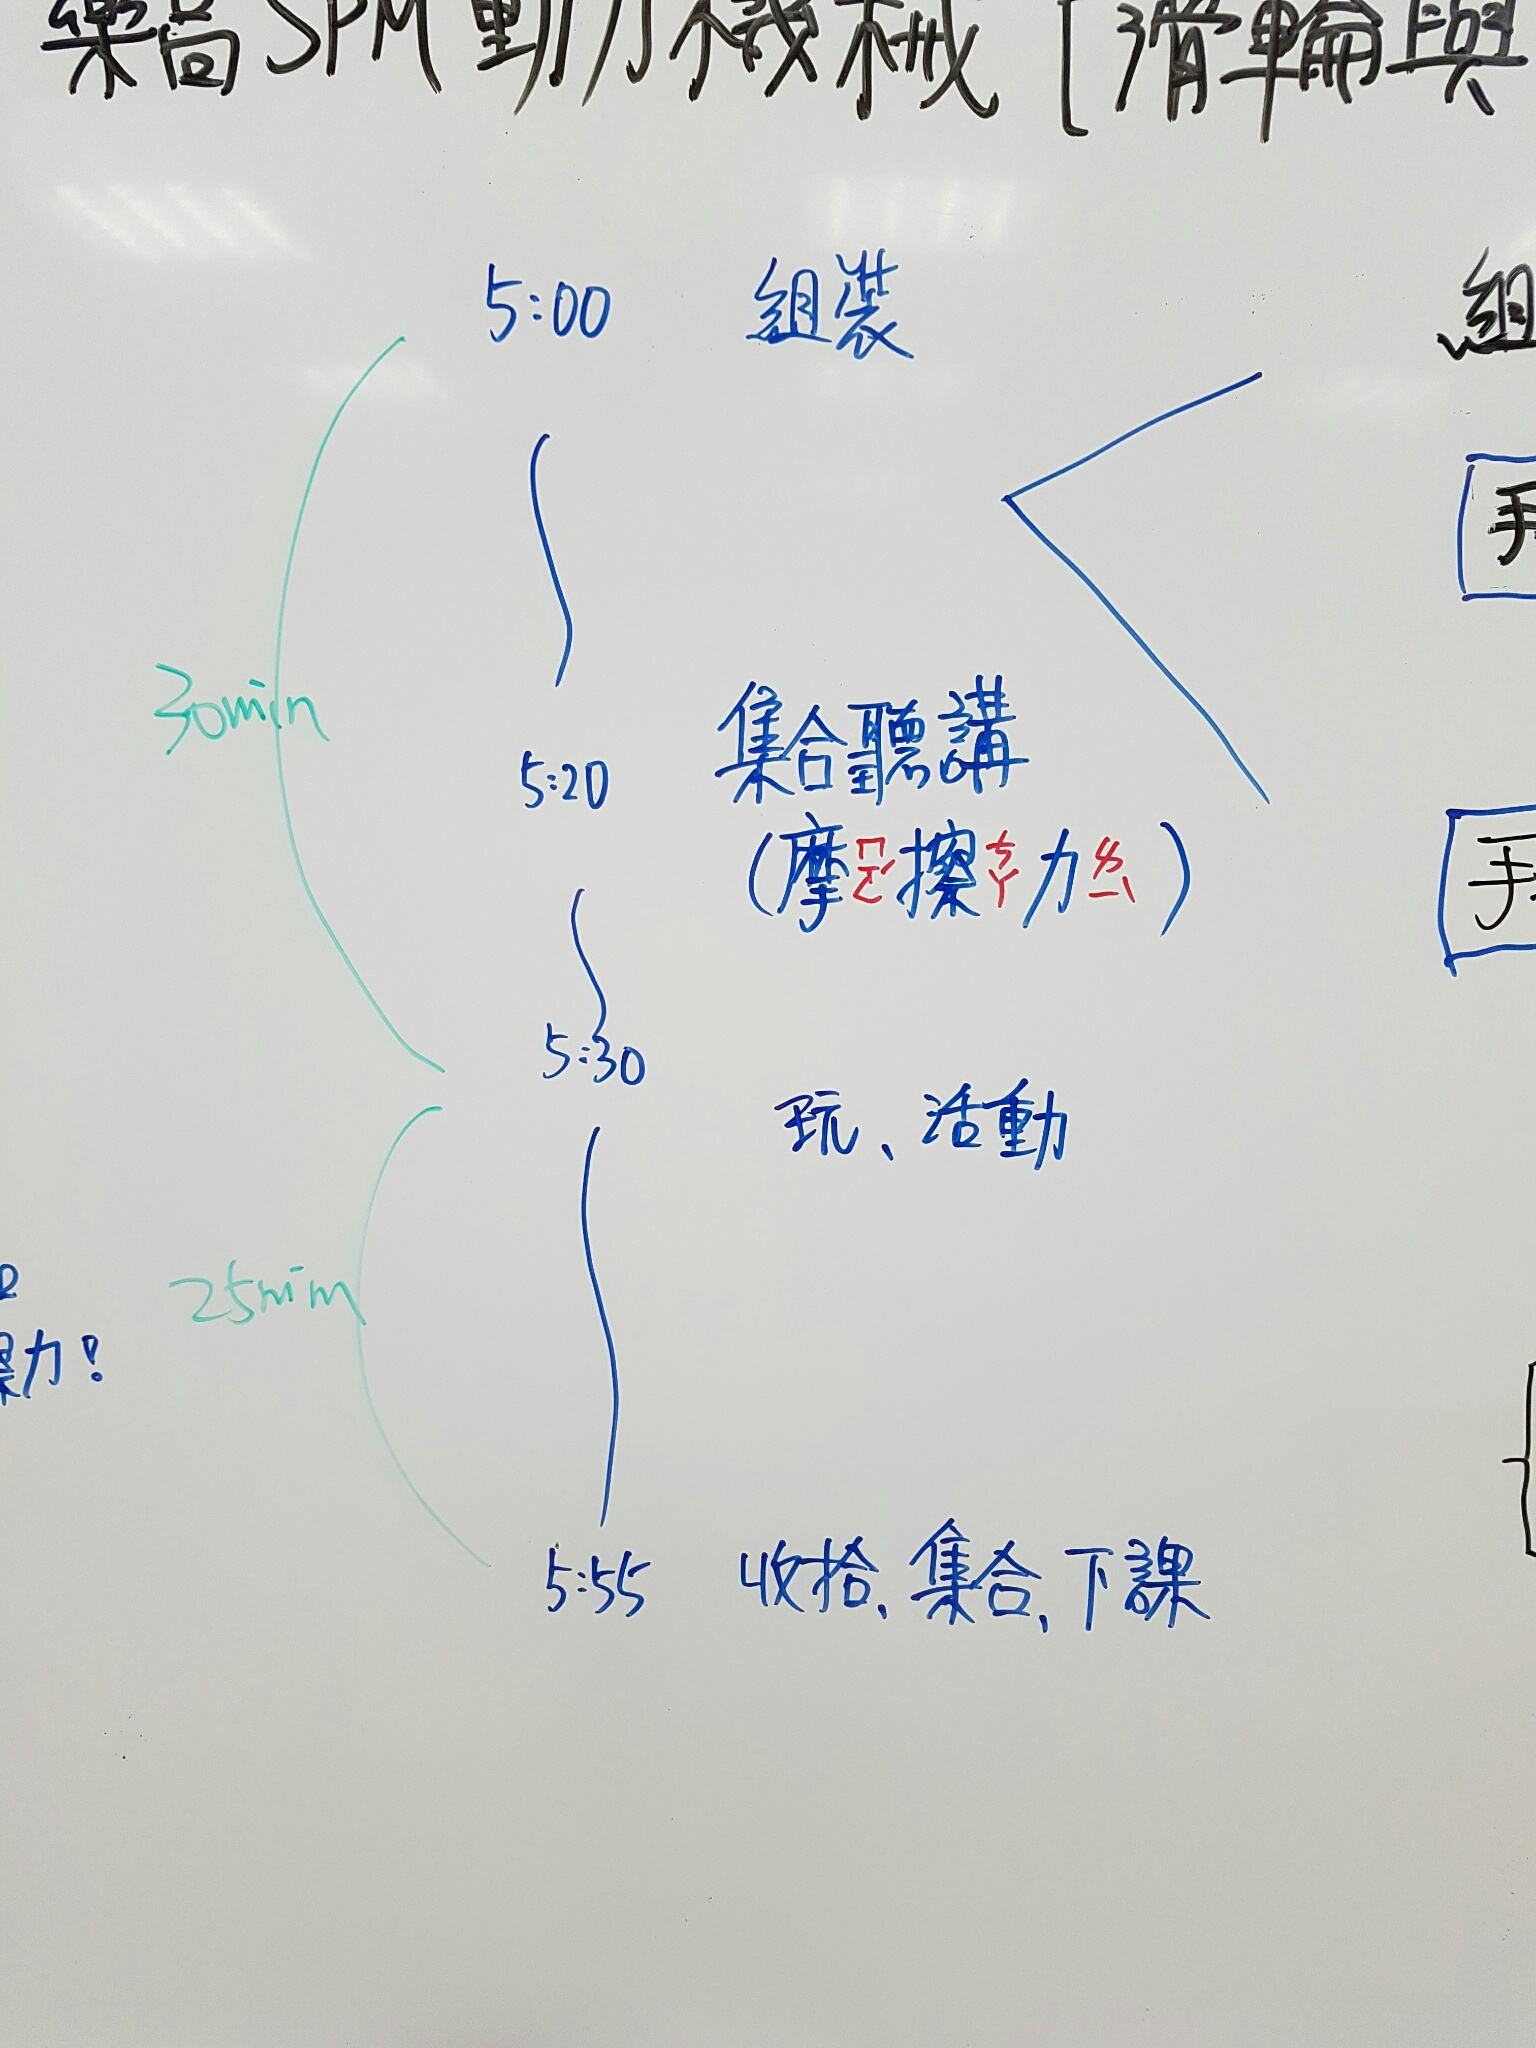 樂高SPM動力機械[滑輪與
5:00 組裝
組
手
30min
5:20 集合聽講
(摩ㄇㄛˊ擦ㄘㄚ力ㄌㄧˋ)
手
5:30
玩、活動
25min
力!
5:55 收拾、集合、下課